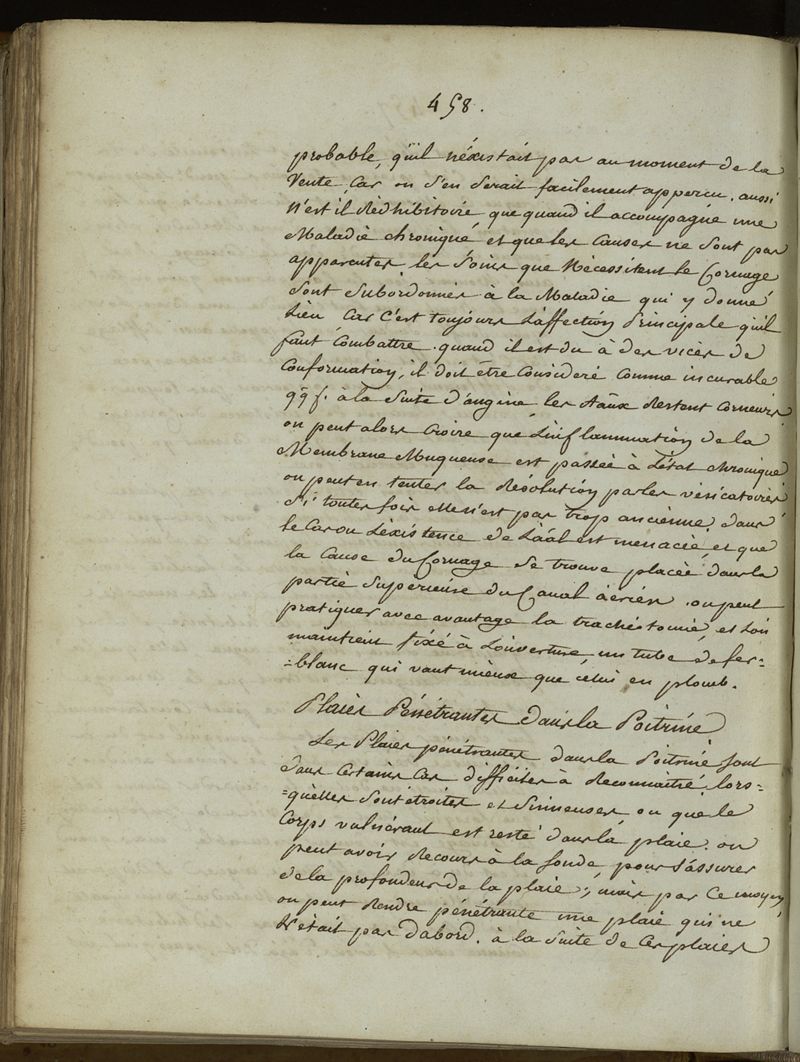 458.
probable, qu'il n'éxistait pas au moment de la
Vente, Car on s'en serait facilement apperçu. aussi
N'est il Rédhibitoire, que quand il accompagne une
Maladie chronique, et que les Causes ne sont pas
apparentes. les soins que Nécessitent le Cornage
sont subordonnés à la Maladie qui y donne
Lieu Car C'est toujours L'affection Principale qu'il
faut Combattre. quand il est du à des vices de
Conformation, il doit être Consideré Comme incurable
qq f. à la suite d'angine les Aãux Restent Corneurs
on peut alors Croire que L'inflammation de la
Membrane Muqueuse est passée à L'état chronique
on peut en tenter la Résolution par les vésicatoires
Si toutes fois elle n'est pas trop ancienne. dans
le Cas ou L'éxistence de L'aãl est menacée, et que
la Cause du Cornage se trouve placée dans la
partie supérieure du Canal aërien. on peut
pratiquer avec avantage la trachéotomie, et L'on
maintient fixé à L'ouverture un tube de fer=
=blanc qui vaut mieux que celui en plomb.
Plaies Pénétrantes dans la Poitrine
Les Plaies pénétrantes dans la Poitrine sont
dans Certains Cas difficiles à Reconnaitre, lors=
=qu'elles sont étroites et Sinueuses, ou que le
Corps vulnérant est resté dans la plaie. on
peut avoir Recours à la sonde, pour s'assurer
de la profondeur de la plaie; mais par Ce moyen,
on peut Rendre pénétrante une plaie qui ne
L'était pas d'abord. à la Suite de Ces plaies